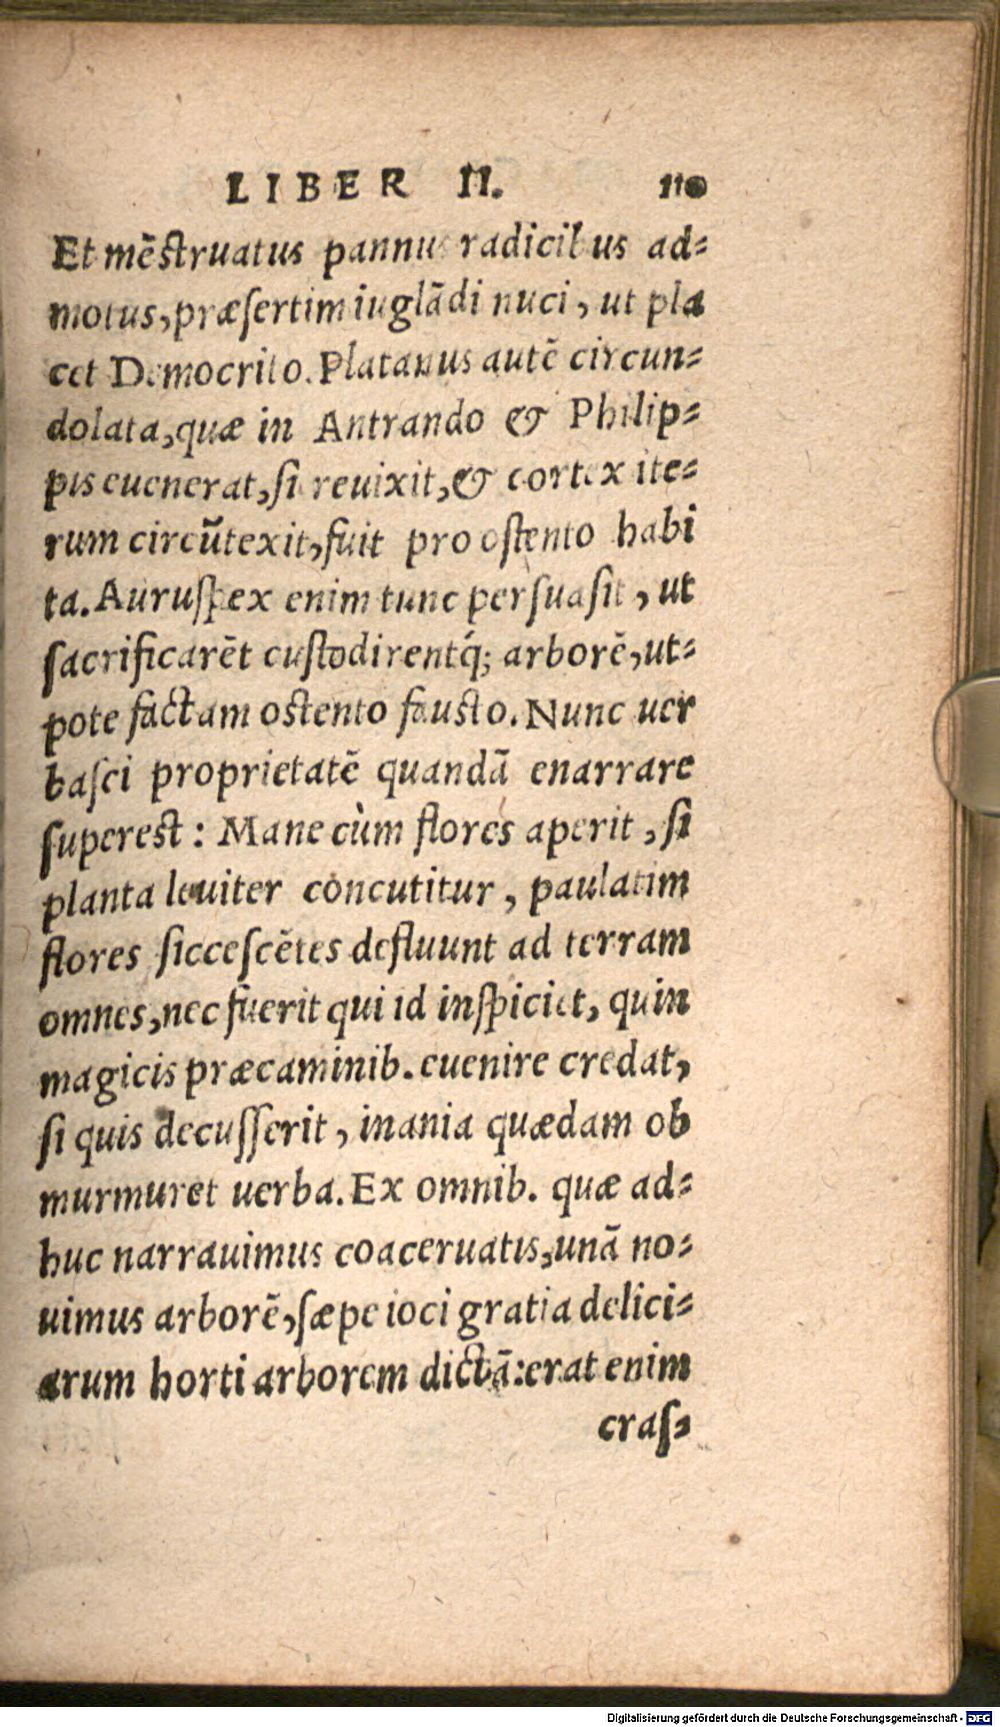 LIBER II. 110
Et mēstruatus pannus radicibus ad-
motus, præsertim iuglādi nuci, ut pla
cet Democrito. Platanus autē circun-
dolata, quæ in Antrando & Philip-
pis euenerat, si reuixit, & cortex ite-
rum circūtexit, fuit pro ostento habi
ta. Auruspex enim tunc persuasit, ut
sacrificarēt custodirentq́; arborē, ut-
pote factam ostento fausto. Nunc uer
basci proprietatē quandā enarrare
superest: Mane cùm flores aperit, si
planta leuiter concutitur, paulatim
flores siccescētes defluunt ad terram
omnes, nec fuerit qui id inspiciet, quin
magicis præcaminib. euenire credat,
si quis decusserit, inania quædam ob
murmuret uerba. Ex omnib. quæ ad-
huc narrauimus coaceruatis, unā no-
uimus arborē, sæpe ioci gratia delici-
arum horti arborem dictā: erat enim
cras-
Digitalisierung gefördert durch die Deutsche Forschungsgemeinschaft - DFG